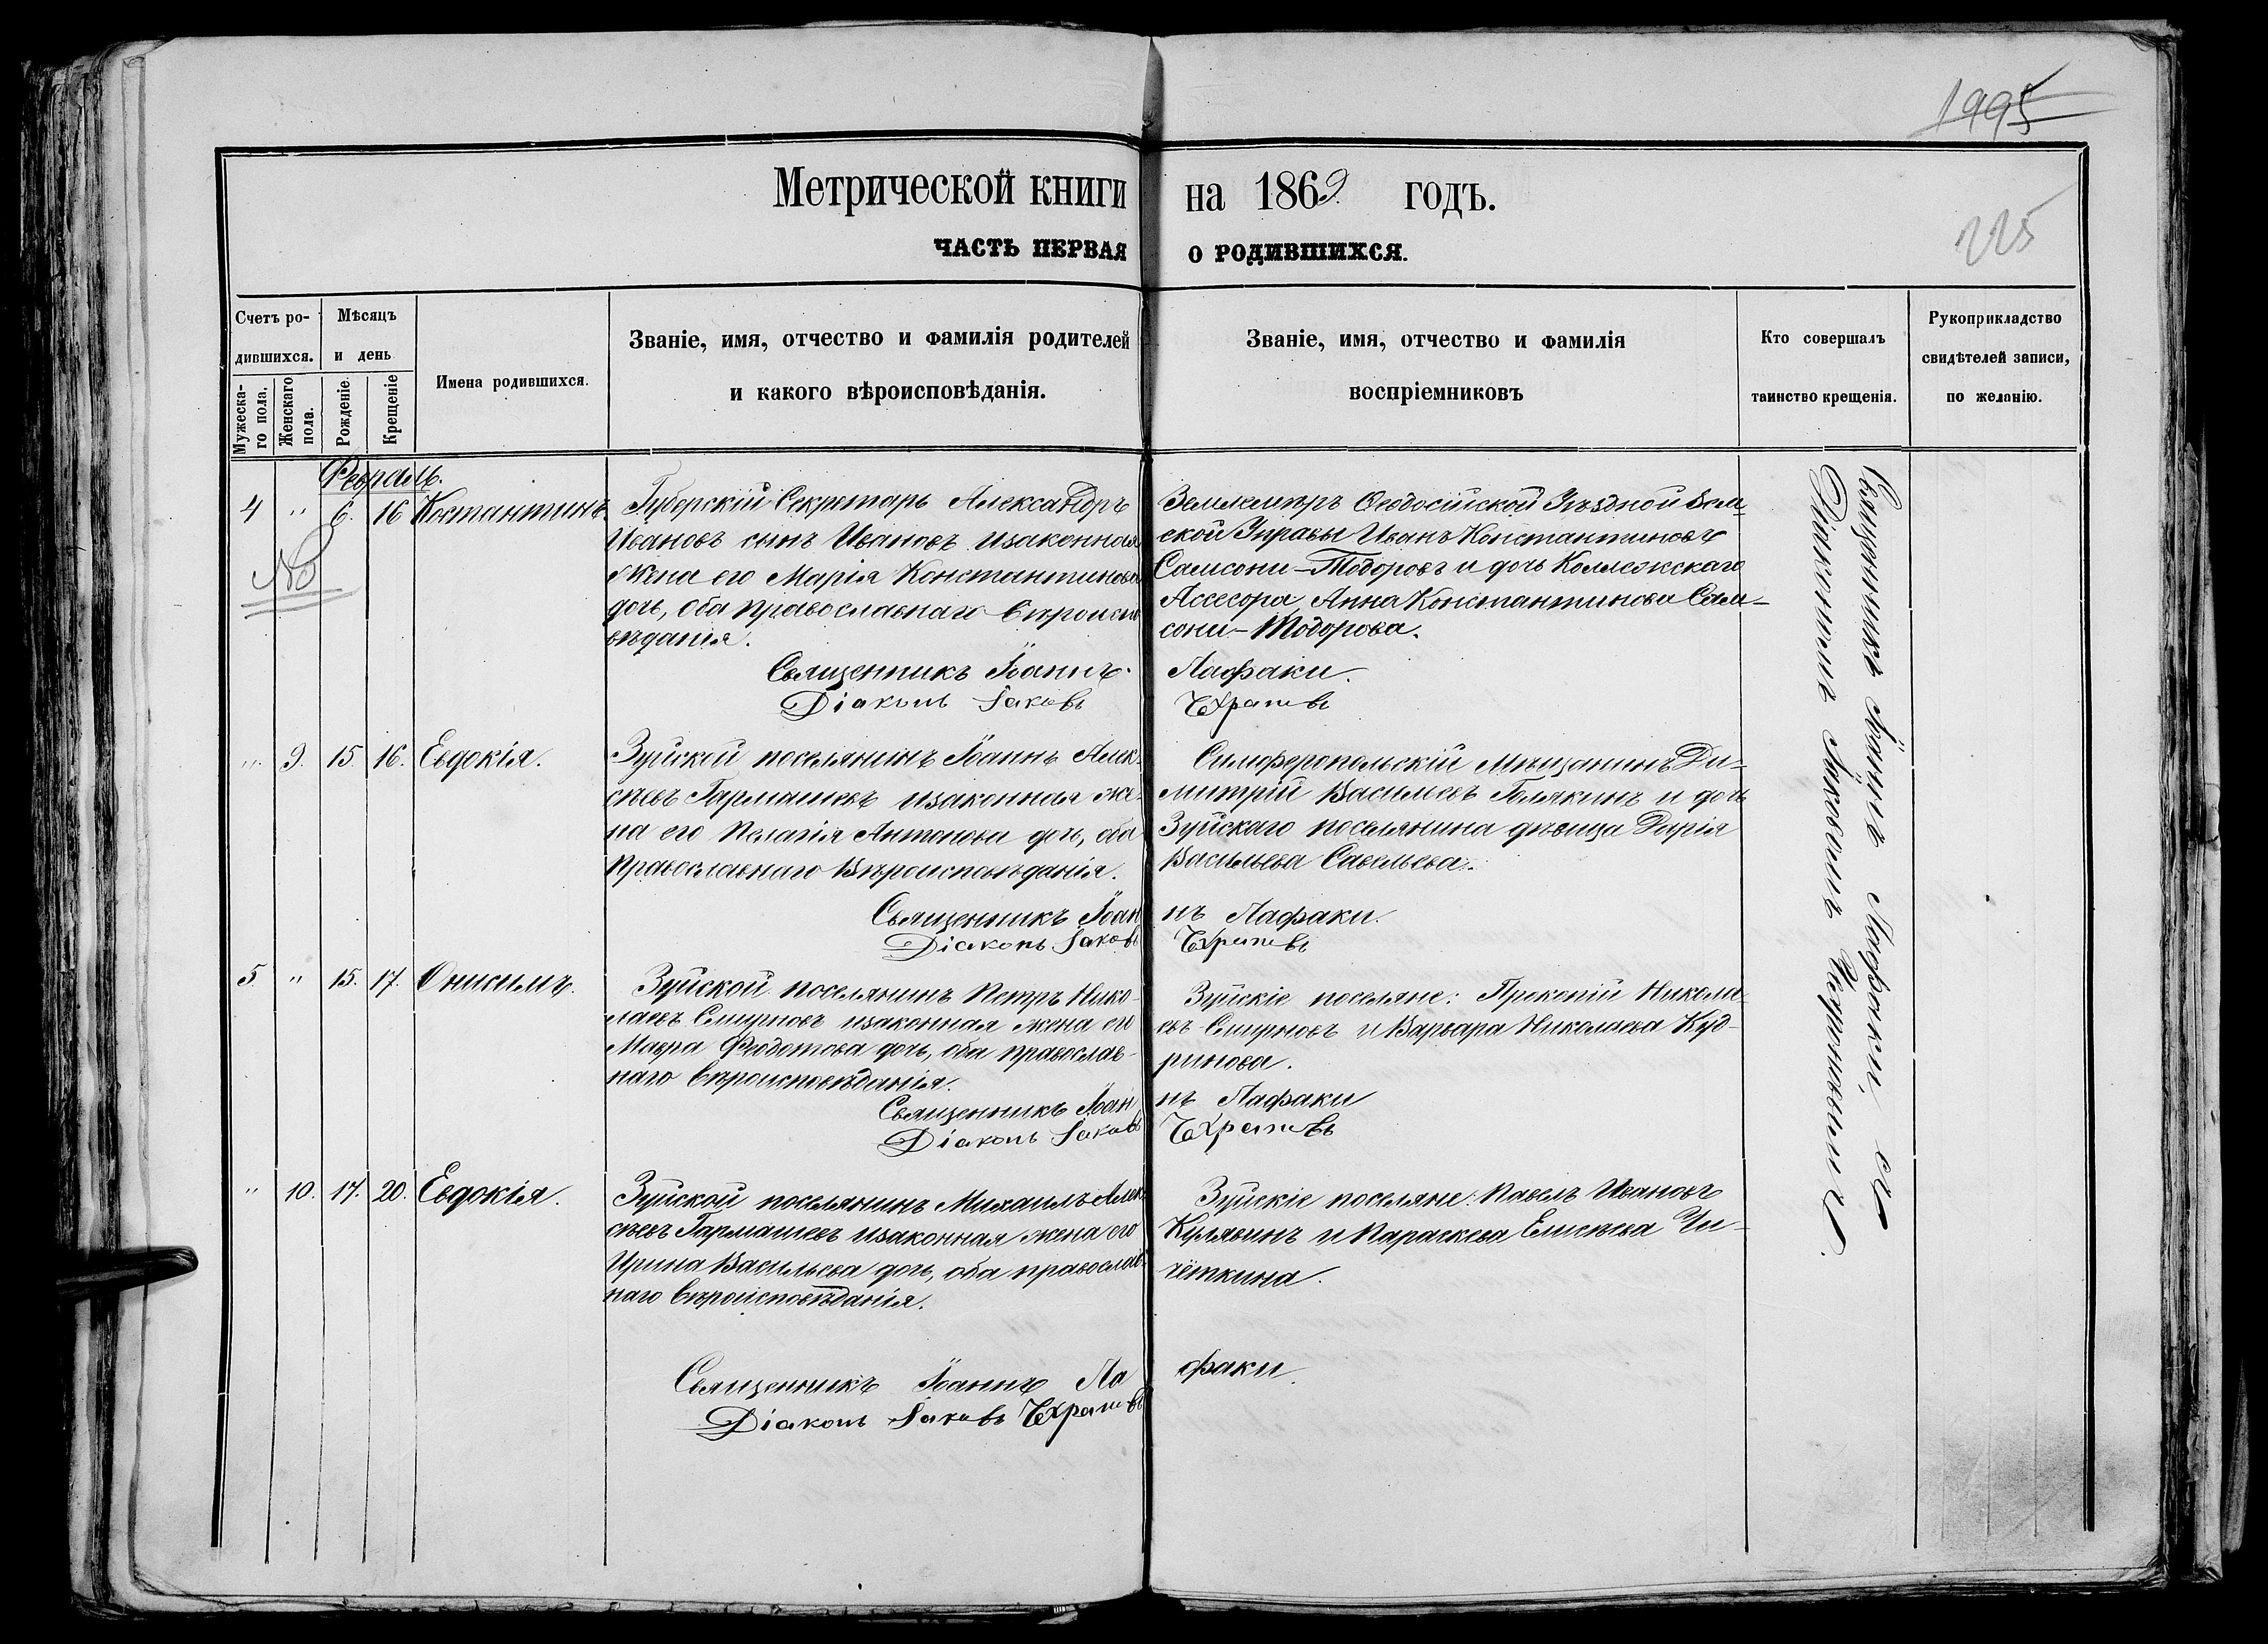 1995
Метрической книги на 1869 годъ.
225
ЧАСТЬ ПЕРВАЯ О РОДИВШИХСЯ.
Счетъ ро-
дившихся.
Мужеска-
го пола.
Женскаго
пола.
Мѣсяцъ
и день
Рожденіе.
Крещеніе
Имена родившихся.
Званіе, имя, отчество и фамилія родителей
и какого вѣроисповѣданія.
Званіе, имя, отчество и фамилія
воспріемниковъ
Кто совершалъ
таинство крещенія.
Рукоприкладство
свидѣтелей записи,
по желанію.
Февраль.
4 " 6. 16 Костантинъ.
№
Губерскій Секретарь Александръ
Ивановъ сынъ Ивановъ изаконная
жена его Марія Константинова
дочь, оба православнаго вѣроиспо
вѣданія.
Землемѣръ Ѳеодосійской Уѣздной Зем-
ской Управы Иванъ Константиновъ
Самсони-Тодоровъ и дочь Коллежскаго
Ассесора Анна Константинова Сам-
сони-Тодорова.
Священникъ Іоаннъ Лафаки.
Діаконъ Іаковъ
" 9. 15. 16. Евдокія.
Зуйской поселянинъ Іоаннъ Алек-
сѣевъ Гармашевъ изаконная же-
на его Пелагія Антонова дочь, оба
православнаго вѣроисповѣданія.
Симферопольскій мѣщанинъ Ди-
митрій Васильевъ Голякинъ и дочь
Зуйскаго поселянина дѣвица Дарія
Васильева Савельева.
Священникъ Іоаннъ Лафаки.
Діаконъ Іаковъ
5. " 15. 17. Онисимъ.
Зуйской поселянинъ Петръ Нико-
лаевъ Смирновъ изаконная жена его
Мавра Ѳеодотова дочь, оба православ-
наго вѣроисповѣданія.
Зуйскіе поселяне: Прокопій Никола-
евъ Смирновъ и Варвара Николаева Куд-
ринова.
Священникъ Іоаннъ Лафаки
Діаконъ Іаковъ
" 10. 17. 20. Евдокія.
Зуйской поселянинъ Михаилъ Алек-
сѣевъ Гармашевъ изаконная жена его
Ирина Васильева дочь, оба православ-
наго вѣроисповѣданія.
Зуйскіе поселяне: Павелъ Ивановъ
Кулявинъ и Параскева Елисѣева Чи-
чёткина.
Священникъ Іоаннъ Лафаки
Діаконъ Іаковъ
Священникъ Іоаннъ Лафаки съ
Діакономъ Іаковомъ